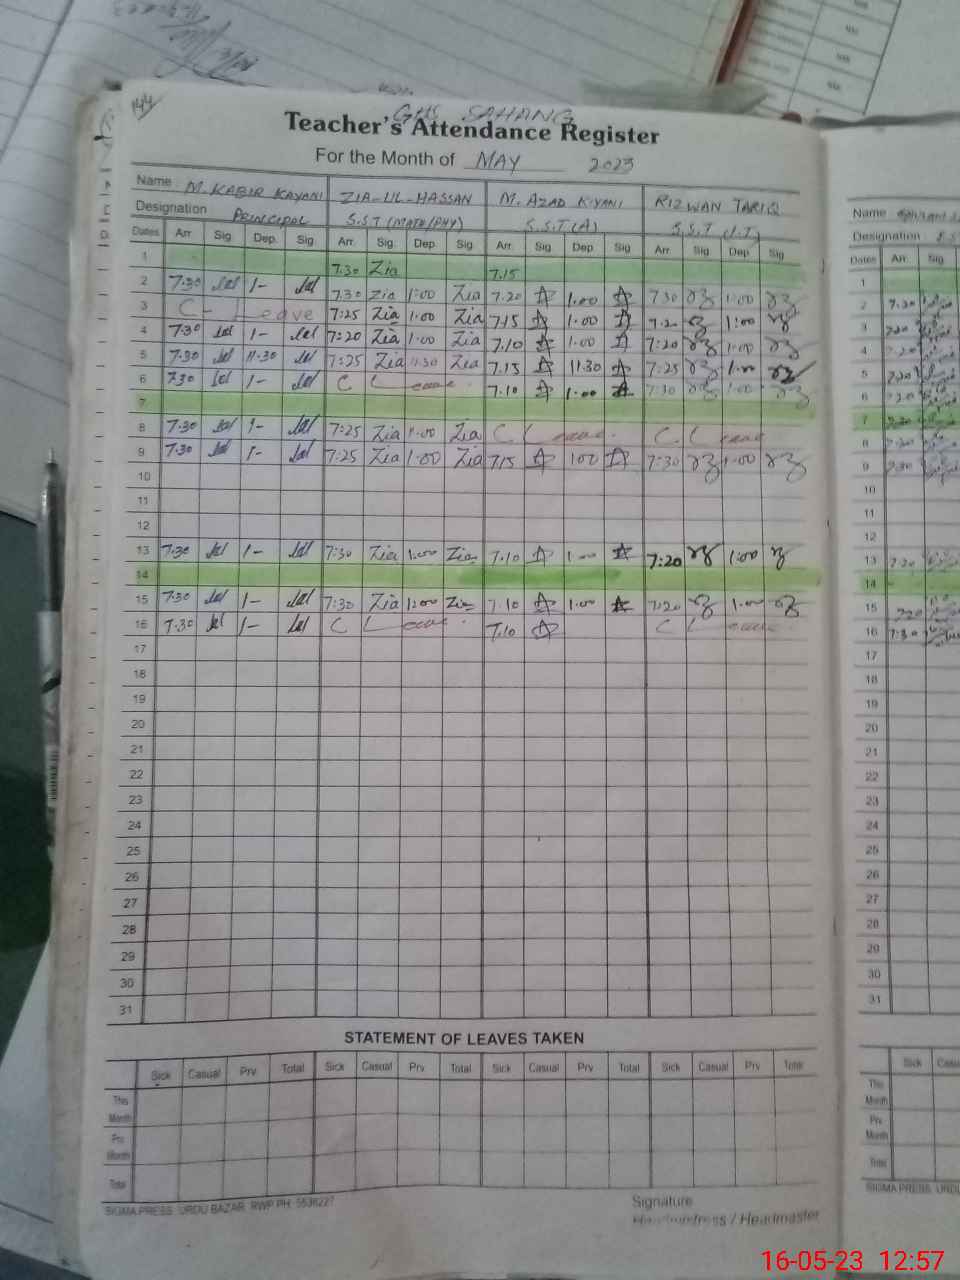 144
GHS SAHANG
Teacher's Attendance Register
For the Month of MAY 2023
Name M. KABIR KAYANI ZIA-UL-HASSAN M. AZAD KIYANI RIZWAN TARIQ
Designation PRINCIPAL S.S.T (MATH/PHY) S.S.T (A) S.S.T (I.T)
Dates Arr. Sig. Dep. Sig. Arr. Sig. Dep. Sig. Arr. Sig. Dep. Sig Arr. Sig Dep Sig
1 7.30 Zia 7.15
2 7.30 1- 7.30 Zia 1:00 Zia 7.20 1.00 7 30 1:00
3 C- Leave 7:25 Zia 1.00 Zia 7.15 1.00 7.20 1:00
4 7.30 1- 7:20 Zia 1.00 Zia 7.10 1.00 7:20 1.00
5 7.30 11.30 7:25 Zia 11.30 Zia 7.15 11.30 7:25 1.00
6 7.30 1- C Leave. 7.10 1.00 7:30 1.00
7
8 7.30 1- 7:25 Zia 1.00 Zia C Leave. C Leave
9 7.30 1- 7:25 Zia 1.00 Zia 7.15 1.00 7:30 1.00
10
11
12
13 7.30 1- 7:30 Zia 1.00 Zia 7.10 1.00 7:20 1:00
14
15 7.30 1- 7:30 Zia 1:00 Zia 7.10 1.00 7:20 1.00
16 7.30 1- C Leave. 7.10 C Leave.
17
18
19
20
21
22
23
24
25
26
27
28
29
30
31
STATEMENT OF LEAVES TAKEN
Sick Casual Prv Total Sick Casual Prv Total Sick Casual Prv Total Sick Casual Prv Total
This Month
Prv Month
Total
SIGMA PRESS URDU BAZAR RWP PH: 5536227
Signature
Headmistress / Headmaster
Name
Designation
Dates Arr. Sig.
1
2 7.20
3 7.20
4 7.20
5 7.20
6 7.20
7
8 7.20
9 7.30
10
11
12
13 7.20
14
15 7.20
16 7:30
17
18
19
20
21
22
23
24
25
26
27
28
29
30
31
Sick
This Month
Prv Month
Total
SIGMA PRESS
16-05-23 12:57